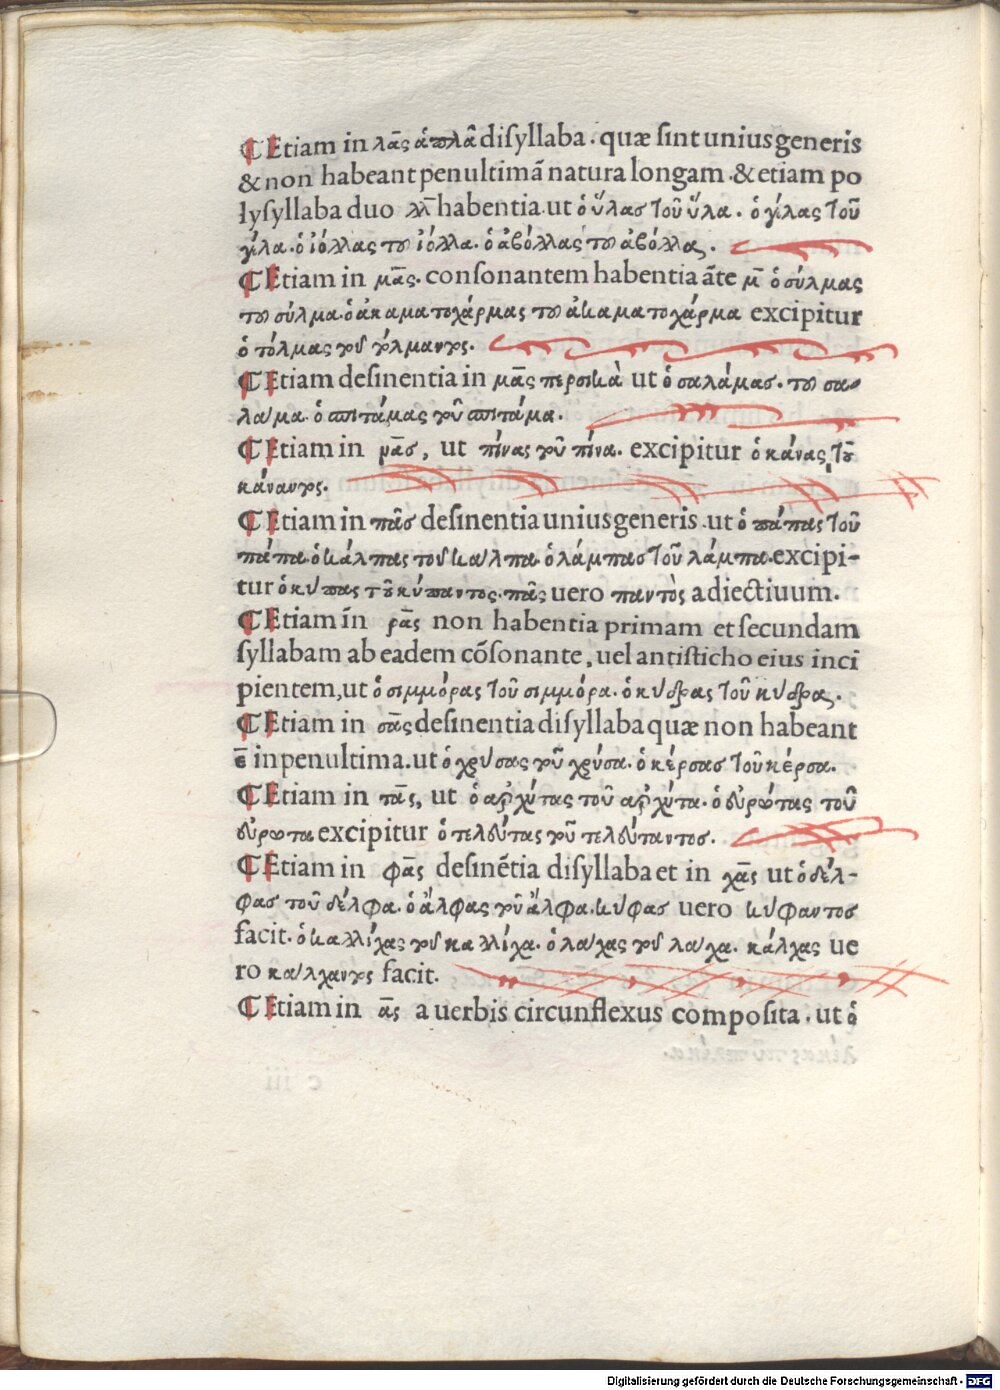 ¶ Etiam in λᾱς ἁπλᾶ diſyllaba . quæ ſint unius generis
& non habeant penultimã natura longam . & etiam po
lyſyllaba duo λλ̄ habentia ut ὁ ὕλασ τοῦ ὕλα . ὁ γίλας τοῦ
γίλα . ὁ ἰόλλας του ἰόλλα . ὁ ἀβόλλας του ἀβόλλας .
¶ Etiam in μᾱς . conſonantem habentia ãte μ̄ ὁ σύλμας
του σύλμα . ὁ ἀκαματοχάρμας του ἀκαματοχάρμα excipitur
ὁ τόλμας
¶ Etiam deſinentia in μᾱς περσικὰ ut ὁ σαλάμασ . του σα
λαμα . ὁ σπιτάμας τοῦ σπιτάμα .
¶ Etiam in νᾱσ , ut πίνας τοῦ πίνα . excipitur ὁ κάνας τοῦ
κάναντος .
¶ Etiam in πᾶσ deſinentia unius generis . ut ὁ πάπας τοῦ
πάπα . ὁ κάλπας τοῦ κάλπα . ὁ λάμπασ τοῦ λάμπα . excipi-
tur ὁ κύπας τοῦ κύπαντος . πᾶς uero παντὸς adiectiuum .
¶ Etiam in ρᾱς non habentia primam et ſecundam
ſyllabam ab eadem cõſonante , uel antiſticho eius inci
pientem , ut ὁ σιμμόρας τοῦ σιμμόρα . ὁ κύδρας τοῦ κύδρας .
¶ Etiam in σᾱς deſinentia diſyllaba quæ non habeant
ε̄ in penultima . ut ὁ χρύσας τοῦ χρύσα . ὁ κέρσασ τοῦ κέρσα .
¶ Etiam in τᾱς , ut ὁ ἀρχύτας τοῦ ἀρχύτα . ὁ εὐρώτας τοῦ
εὐρώτα excipitur ὁ τελεύτας τοῦ τελεύταντοσ .
¶ Etiam in φᾱς deſinẽtia diſyllaba et in χᾱς ut ὁ δέλ-
φασ τοῦ δέλφα . ὁ ἄλφας τοῦ ἄλφα . κύφασ uero κύφαντοσ
facit . ὁ καλλίχας τοῦ καλλίχα . ὁ λαίχας τοῦ λαίχα . κάλχας ue
ro κάλχαντος facit .
¶ Etiam in ᾱς a uerbis circunflexus compoſita . ut ὁ
Digitalisierung gefördert durch die Deutsche Forschungsgemeinschaft - DFG